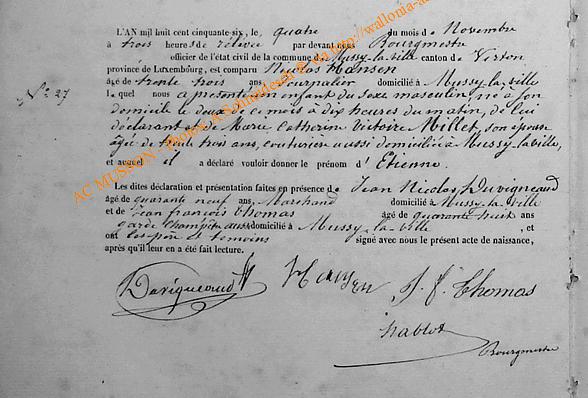 L'AN mil huit cent cinquante-six, le quatre du mois de Novembre
à trois heures de relevée par devant nous Bourgmestre
officier de l'état civil de la commune de Mussy-la-ville canton de Virton
province de Luxembourg, est comparu Nicolas Hansen
âgé de trente trois ans Journalier domicilié à Mussy-la-ville
N° 27
lequel nous a présenté un enfant du sexe masculin né à son
domicile le deux de ce mois à dix heures du matin, de lui
déclarant et de Marie Catherine Victoire Millet, son épouse
âgée de trente trois ans, couturière aussi domiciliée à Mussy-la-ville,
et auquel il a déclaré vouloir donner le prénom d'Etienne.
Les dites déclaration et présentation faites en présence de Jean Nicolas Duvigneaud
âgé de quarante neuf ans, Marchand domicilié à Mussy-la-ville
et de Jean françois Thomas âgé de quarante huit ans
garde champêtre aussi domicilié à Mussy-la-ville, et
ont les père et témoins signé avec nous le présent acte de naissance,
après qu'il leur en a été fait lecture.
Duvigneaud Hansen J. f. Thomas
hablot
Bourgmestre
AC MUSSON - Thomas A Schmetzen @ via http://wallonia-a